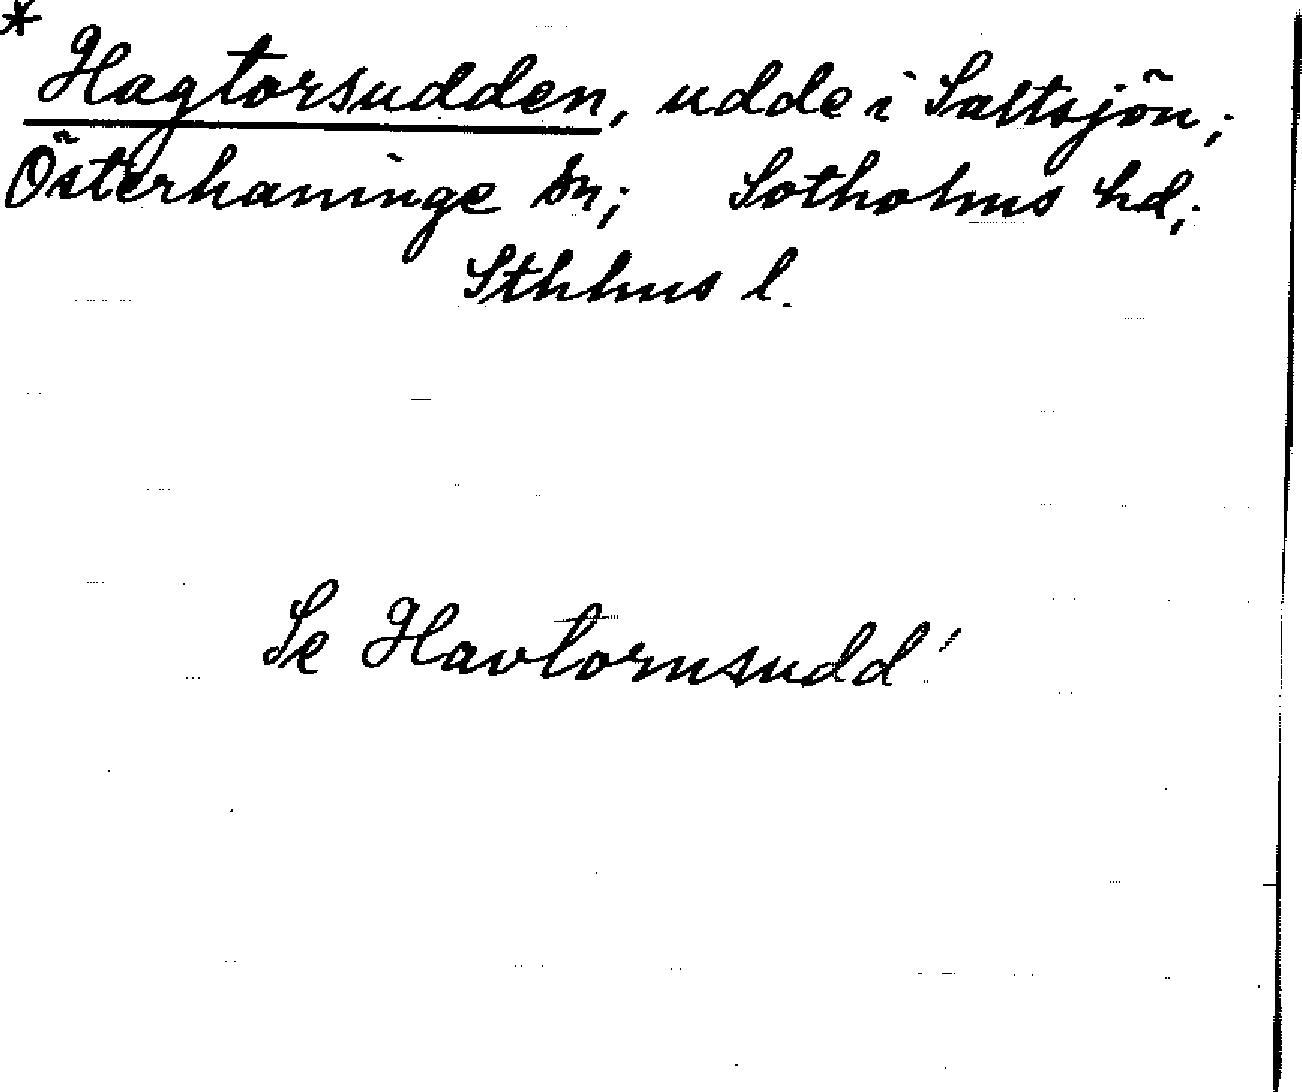 *
Hagtorsudden, udde i Saltsjön;
Österhaninge sn; Sotholms hd;
Sthlms l.
Se Havtornsudd'